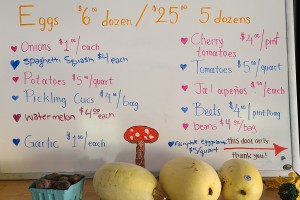 Eggs $6⁰⁰ dozen / $25⁰⁰ 5 dozens
Onions $1⁰⁰/each
Spaghetti Squash $4 each
Potatoes $5⁰⁰/quart
Pickling Cucs $4⁰⁰/bag
watermelon $4⁰⁰ each
Garlic $1⁰⁰/each
Cherry $4⁰⁰/pint
tomatoes
Tomatoes $5⁰⁰/quart
Jalapeños $1⁰⁰/each
Beats $4⁰⁰/pint
beans $4⁰⁰/bag
Fairytale
$5/quart
This door only
Thank you!